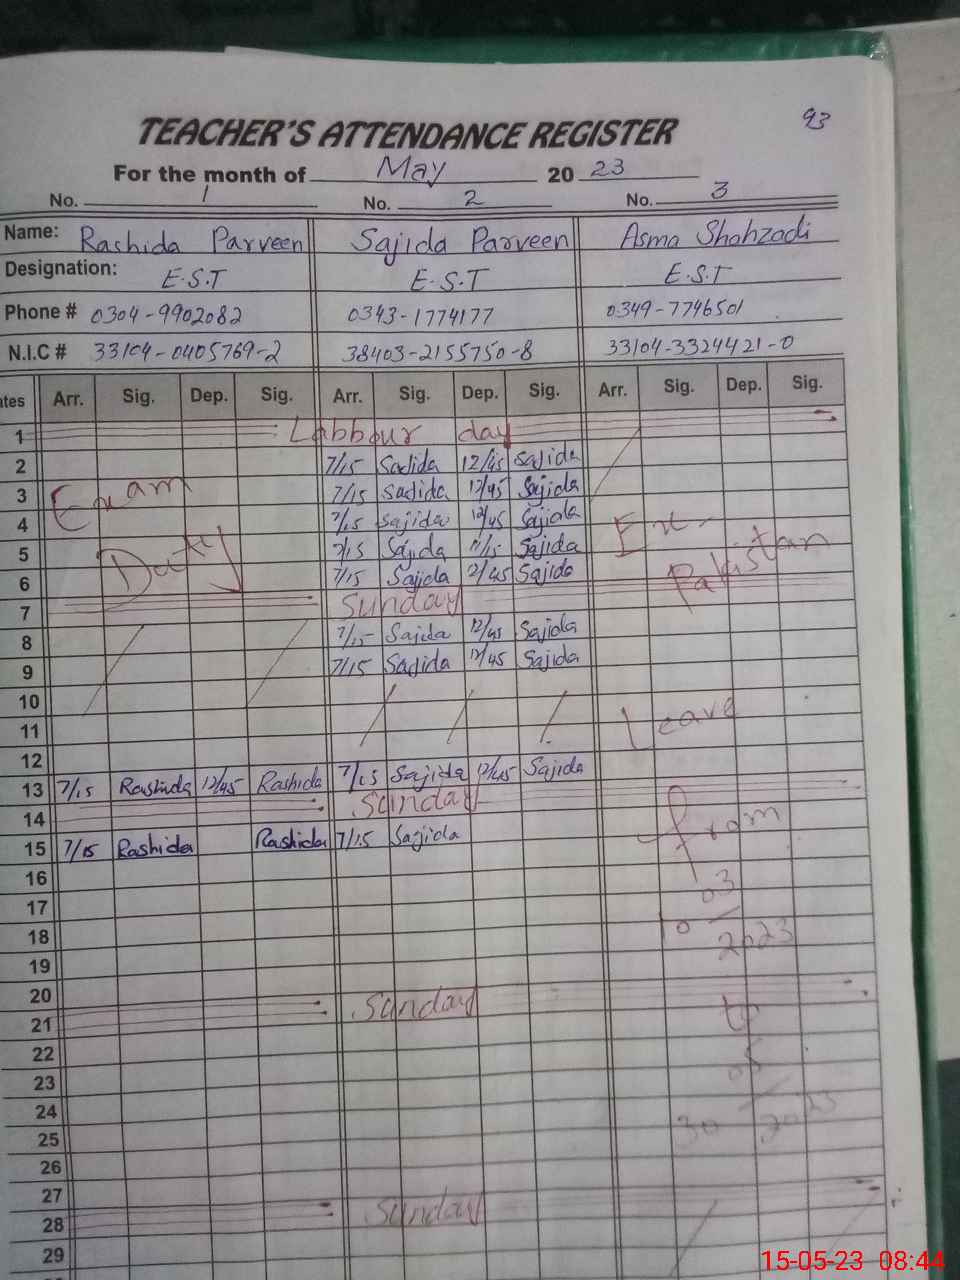 93
TEACHER'S ATTENDANCE REGISTER
For the month of May 2023
No. 1 No. 2 No. 3
Name: Rashida Parveen Sajida Parveen Asma Shahzadi
Designation: E.S.T E.S.T E.S.T
Phone # 0304-9902082 0343-1774177 0349-7746501
N.I.C # 33104-0405769-2 38403-2155750-8 33104-3324421-0
ates Arr. Sig. Dep. Sig. Arr. Sig. Dep. Sig. Arr. Sig. Dep. Sig.
1 Labbour day
2 7/15 Sadida 12/45 Sajida
3 Exam 7/15 Sadida 12/45 Sajida
4 7/15 Sajida 12/45 Sajida Ex-
5 Duty 7/15 Sajida 11/15 Sajida Pakistan
6 7/15 Sajida 12/45 Sajida
7 Sunday
8 7/15 Sajida 12/45 Sajida
9 7/15 Sadida 12/45 Sajida
10
11 Leave
12
13 7/15 Rashida 12/45 Rashida 7/15 Sajida 12/45 Sajida
14 Sunday from
15 7/15 Rashida Rashida 7/15 Sajida
16
17 03
18 10 2023
19
20
21 Sunday to
22
23 05
24 30 2023
25
26
27
28 Sunday
29
15-05-23 08:44